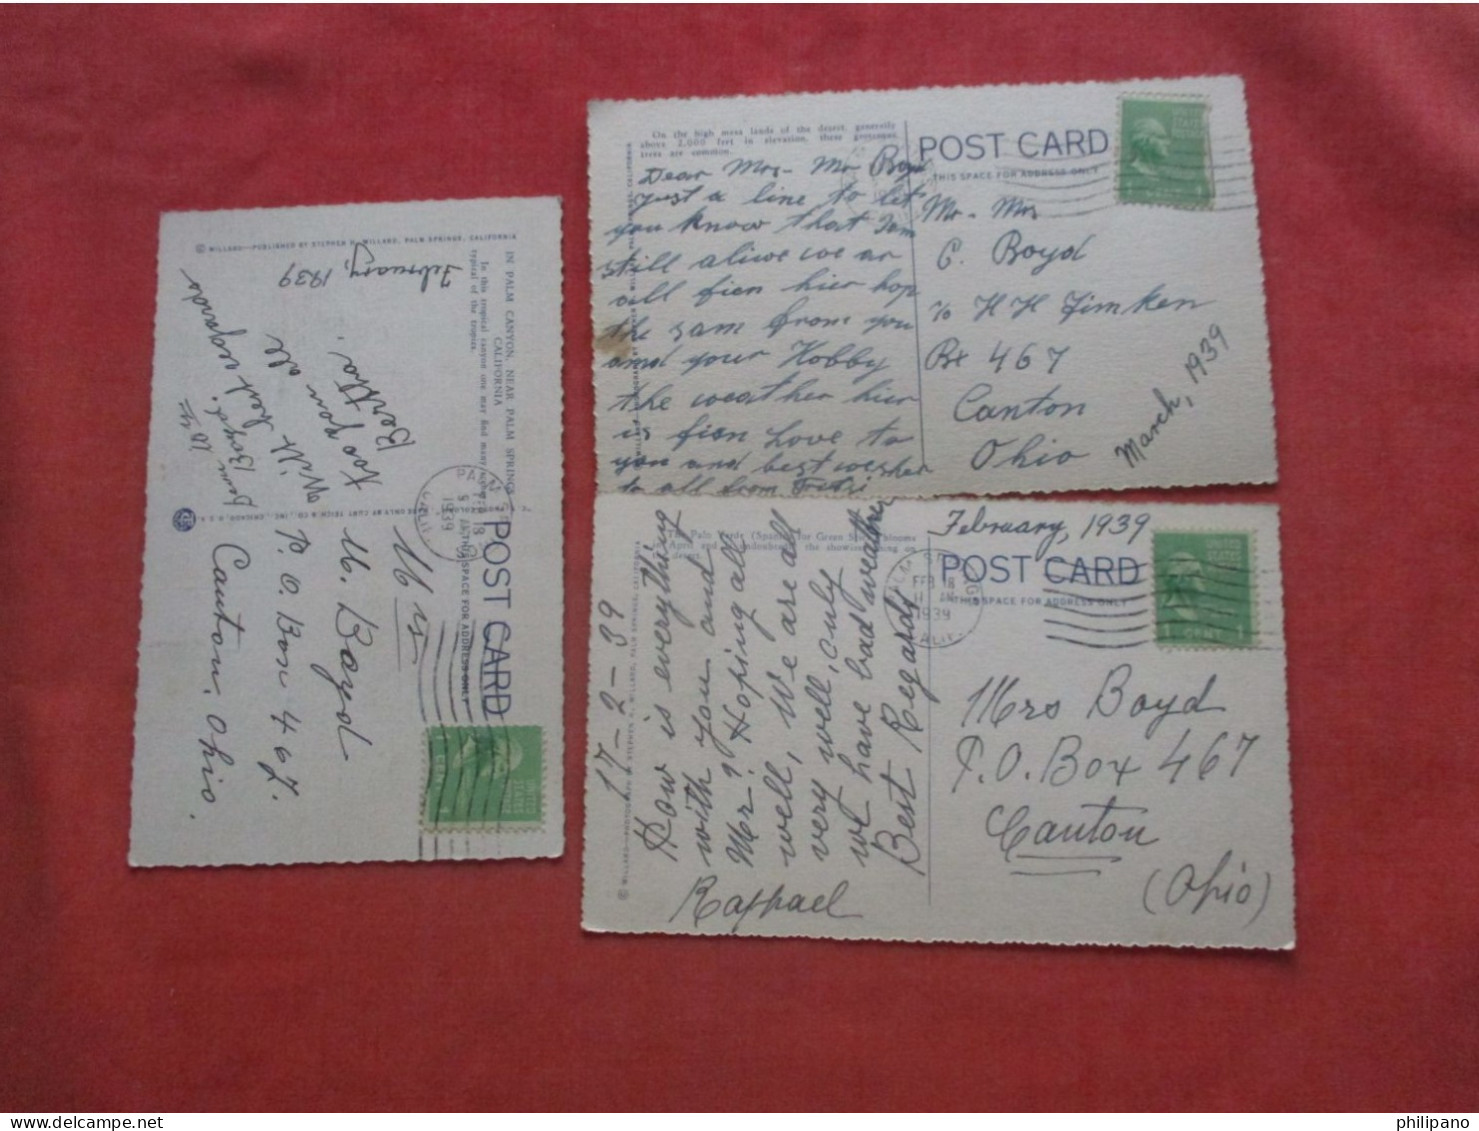 © WILLARD—PUBLISHED BY STEPHEN H. WILLARD, PALM SPRINGS, CALIFORNIA
IN PALM CANYON, NEAR PALM SPRINGS
CALIFORNIA
In this tropical canyon one may find many
typical of the tropics.
February, 1939
With best regards
too you all
Bertha.
POST CARD
THIS SPACE FOR ADDRESS ONLY
CALIF.
1939
M. Boyd
P. O. Box 467.
Canton, Ohio.
On the high mesa lands of the desert, generally
above 2,000 feet in elevation, these grotesque
trees are common.
Dear Mrs - Mr Boyd
just a line to let
you know that I am
still alive we ar
all fien hier hop
the sam from you
and your Hobby
the weather hier
is fien Love to
you and best wesher
to all from
POST CARD
THIS SPACE FOR ADDRESS ONLY
Mr - Mrs
C. Boyd
c/o H H Timken
Bx 467
Canton
Ohio
March, 1939
17-2-39
How is everything
with you and
Mr.? Hoping all
well, We are all
very well, only
we have bad weather
Best Regards
Raphael
February, 1939
POST CARD
THIS SPACE FOR ADDRESS ONLY
PALM SPRINGS
FEB 18
11 AM
1939
CALIF.
1 CENT 1
Mrs Boyd
P.O. Box 467
Canton
(Ohio)
philipano